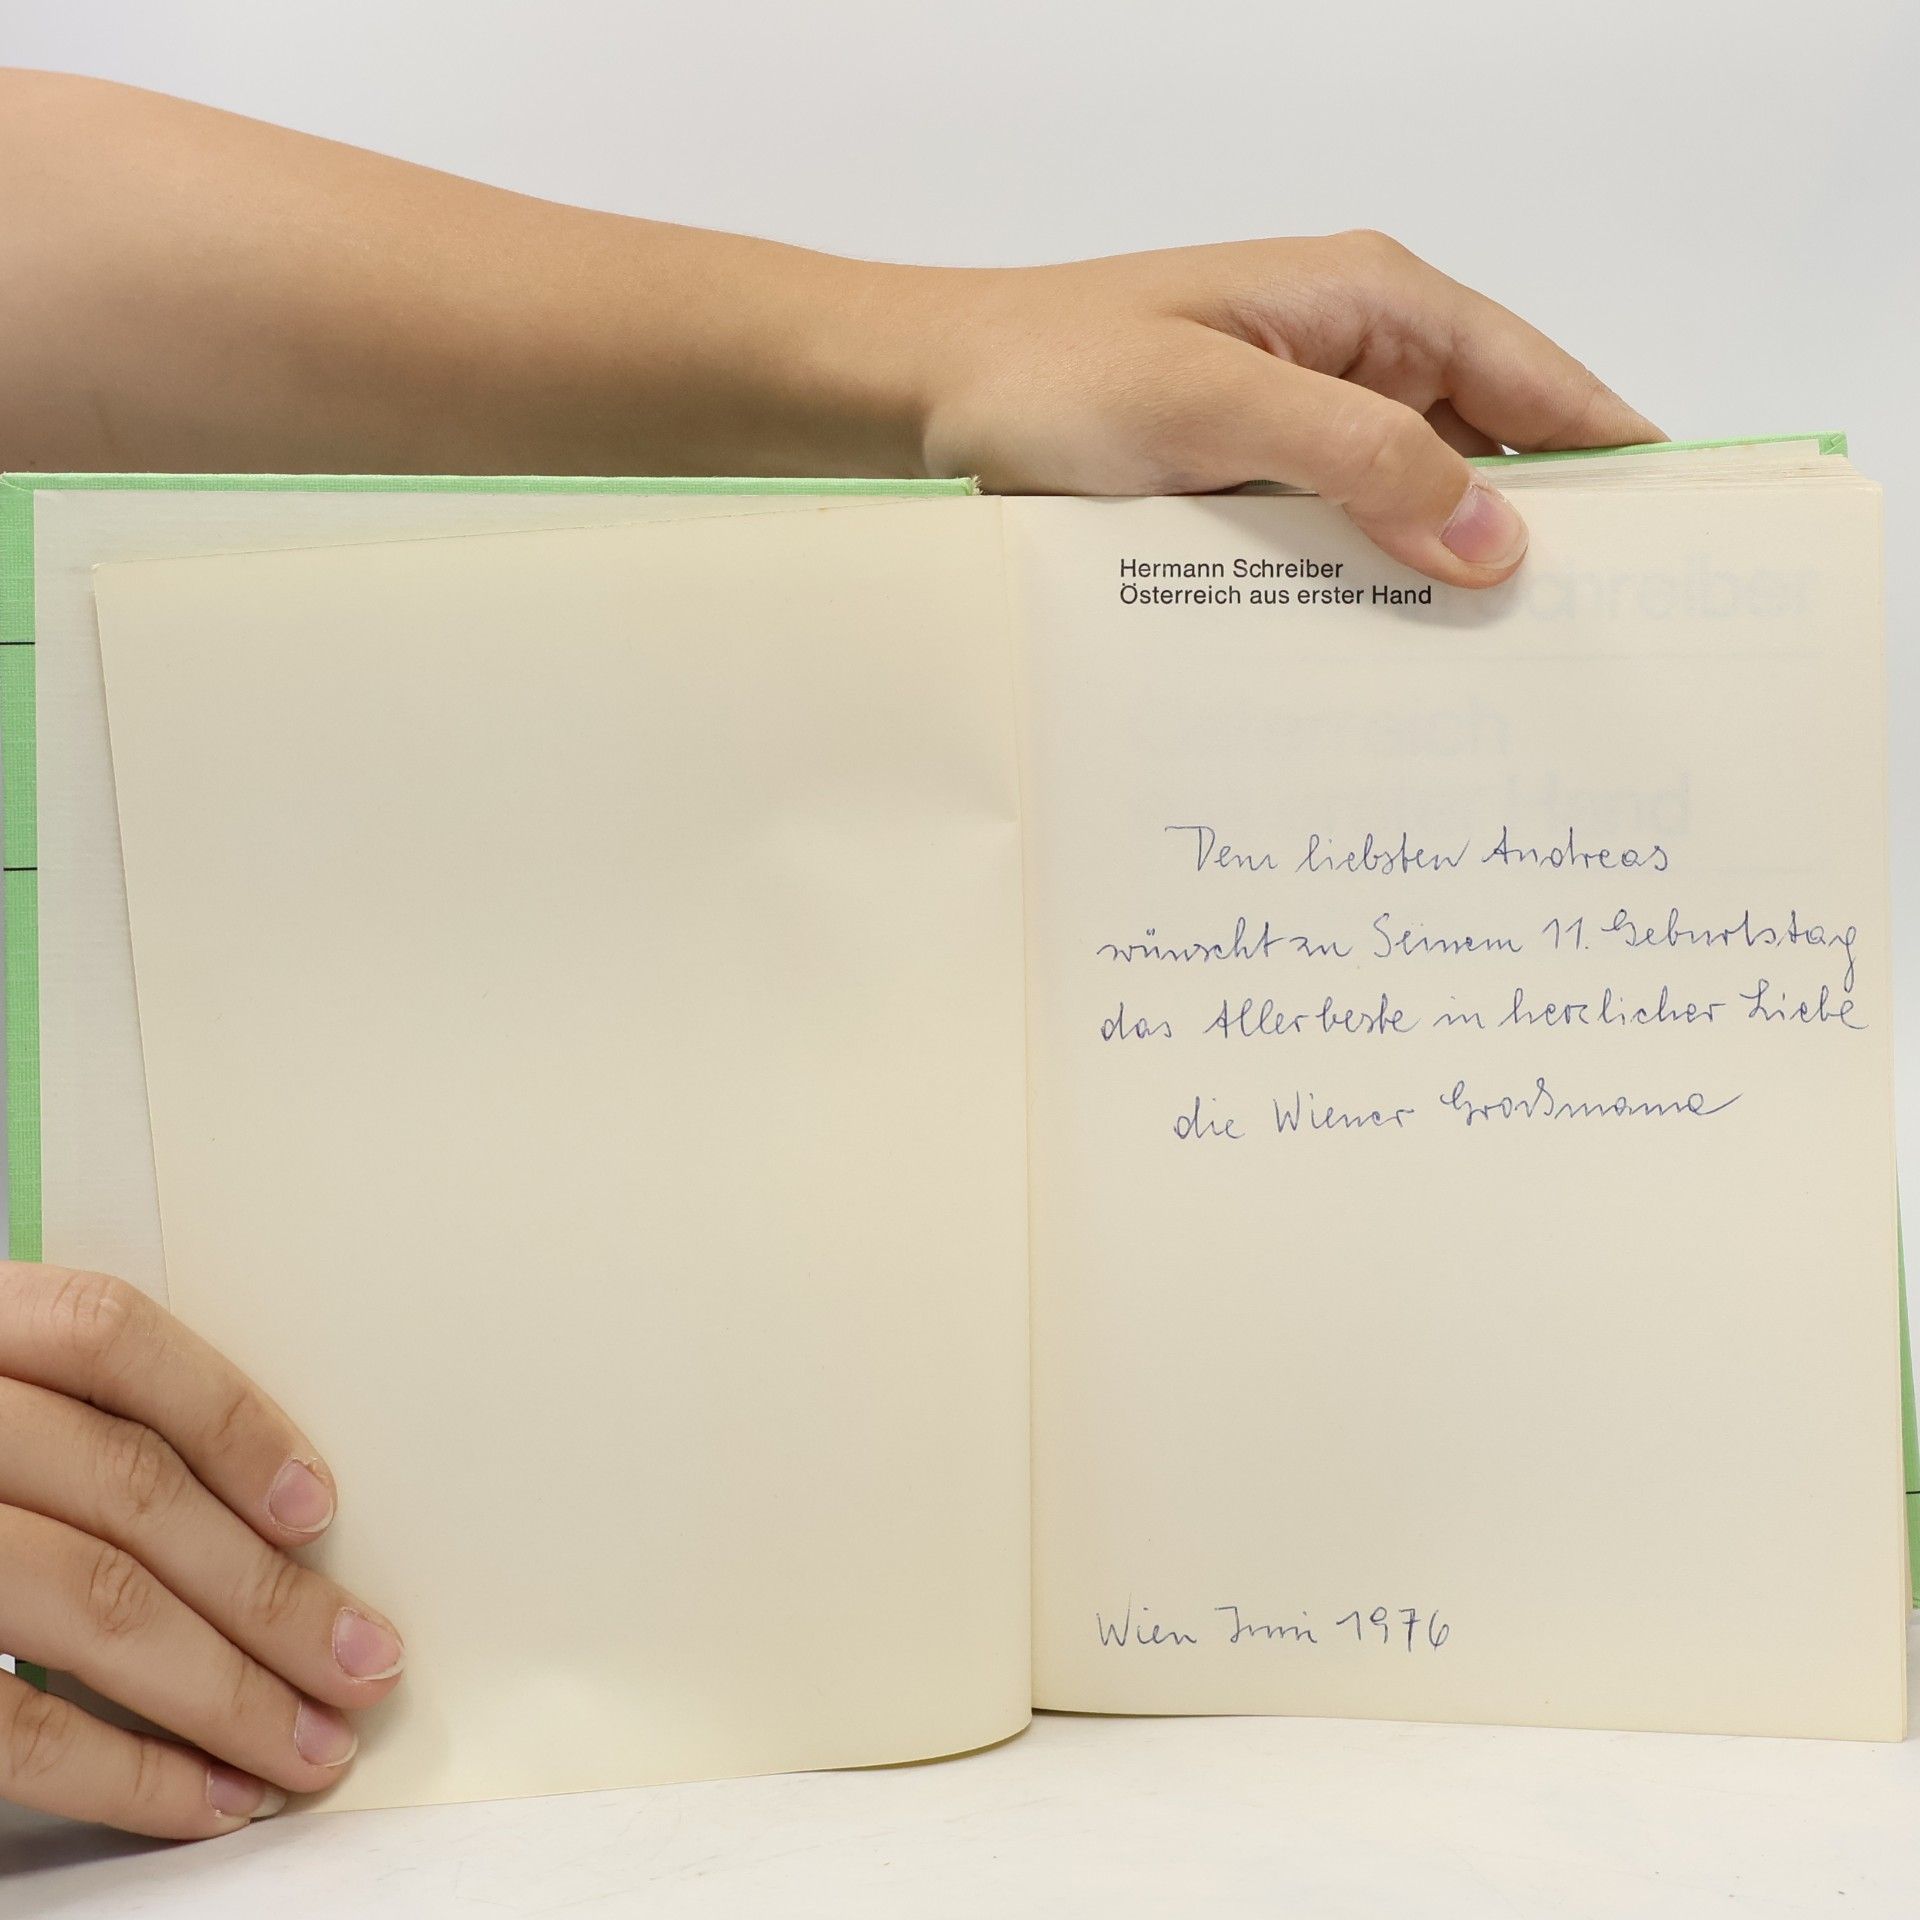 Hermann Schreiber
Österreich aus erster Hand
Dem liebsten Andreas
wünscht zu Seinem 11. Geburtstag
das Allerbeste in herzlicher Liebe
die Wiener Großmama
Wien Juni 1976